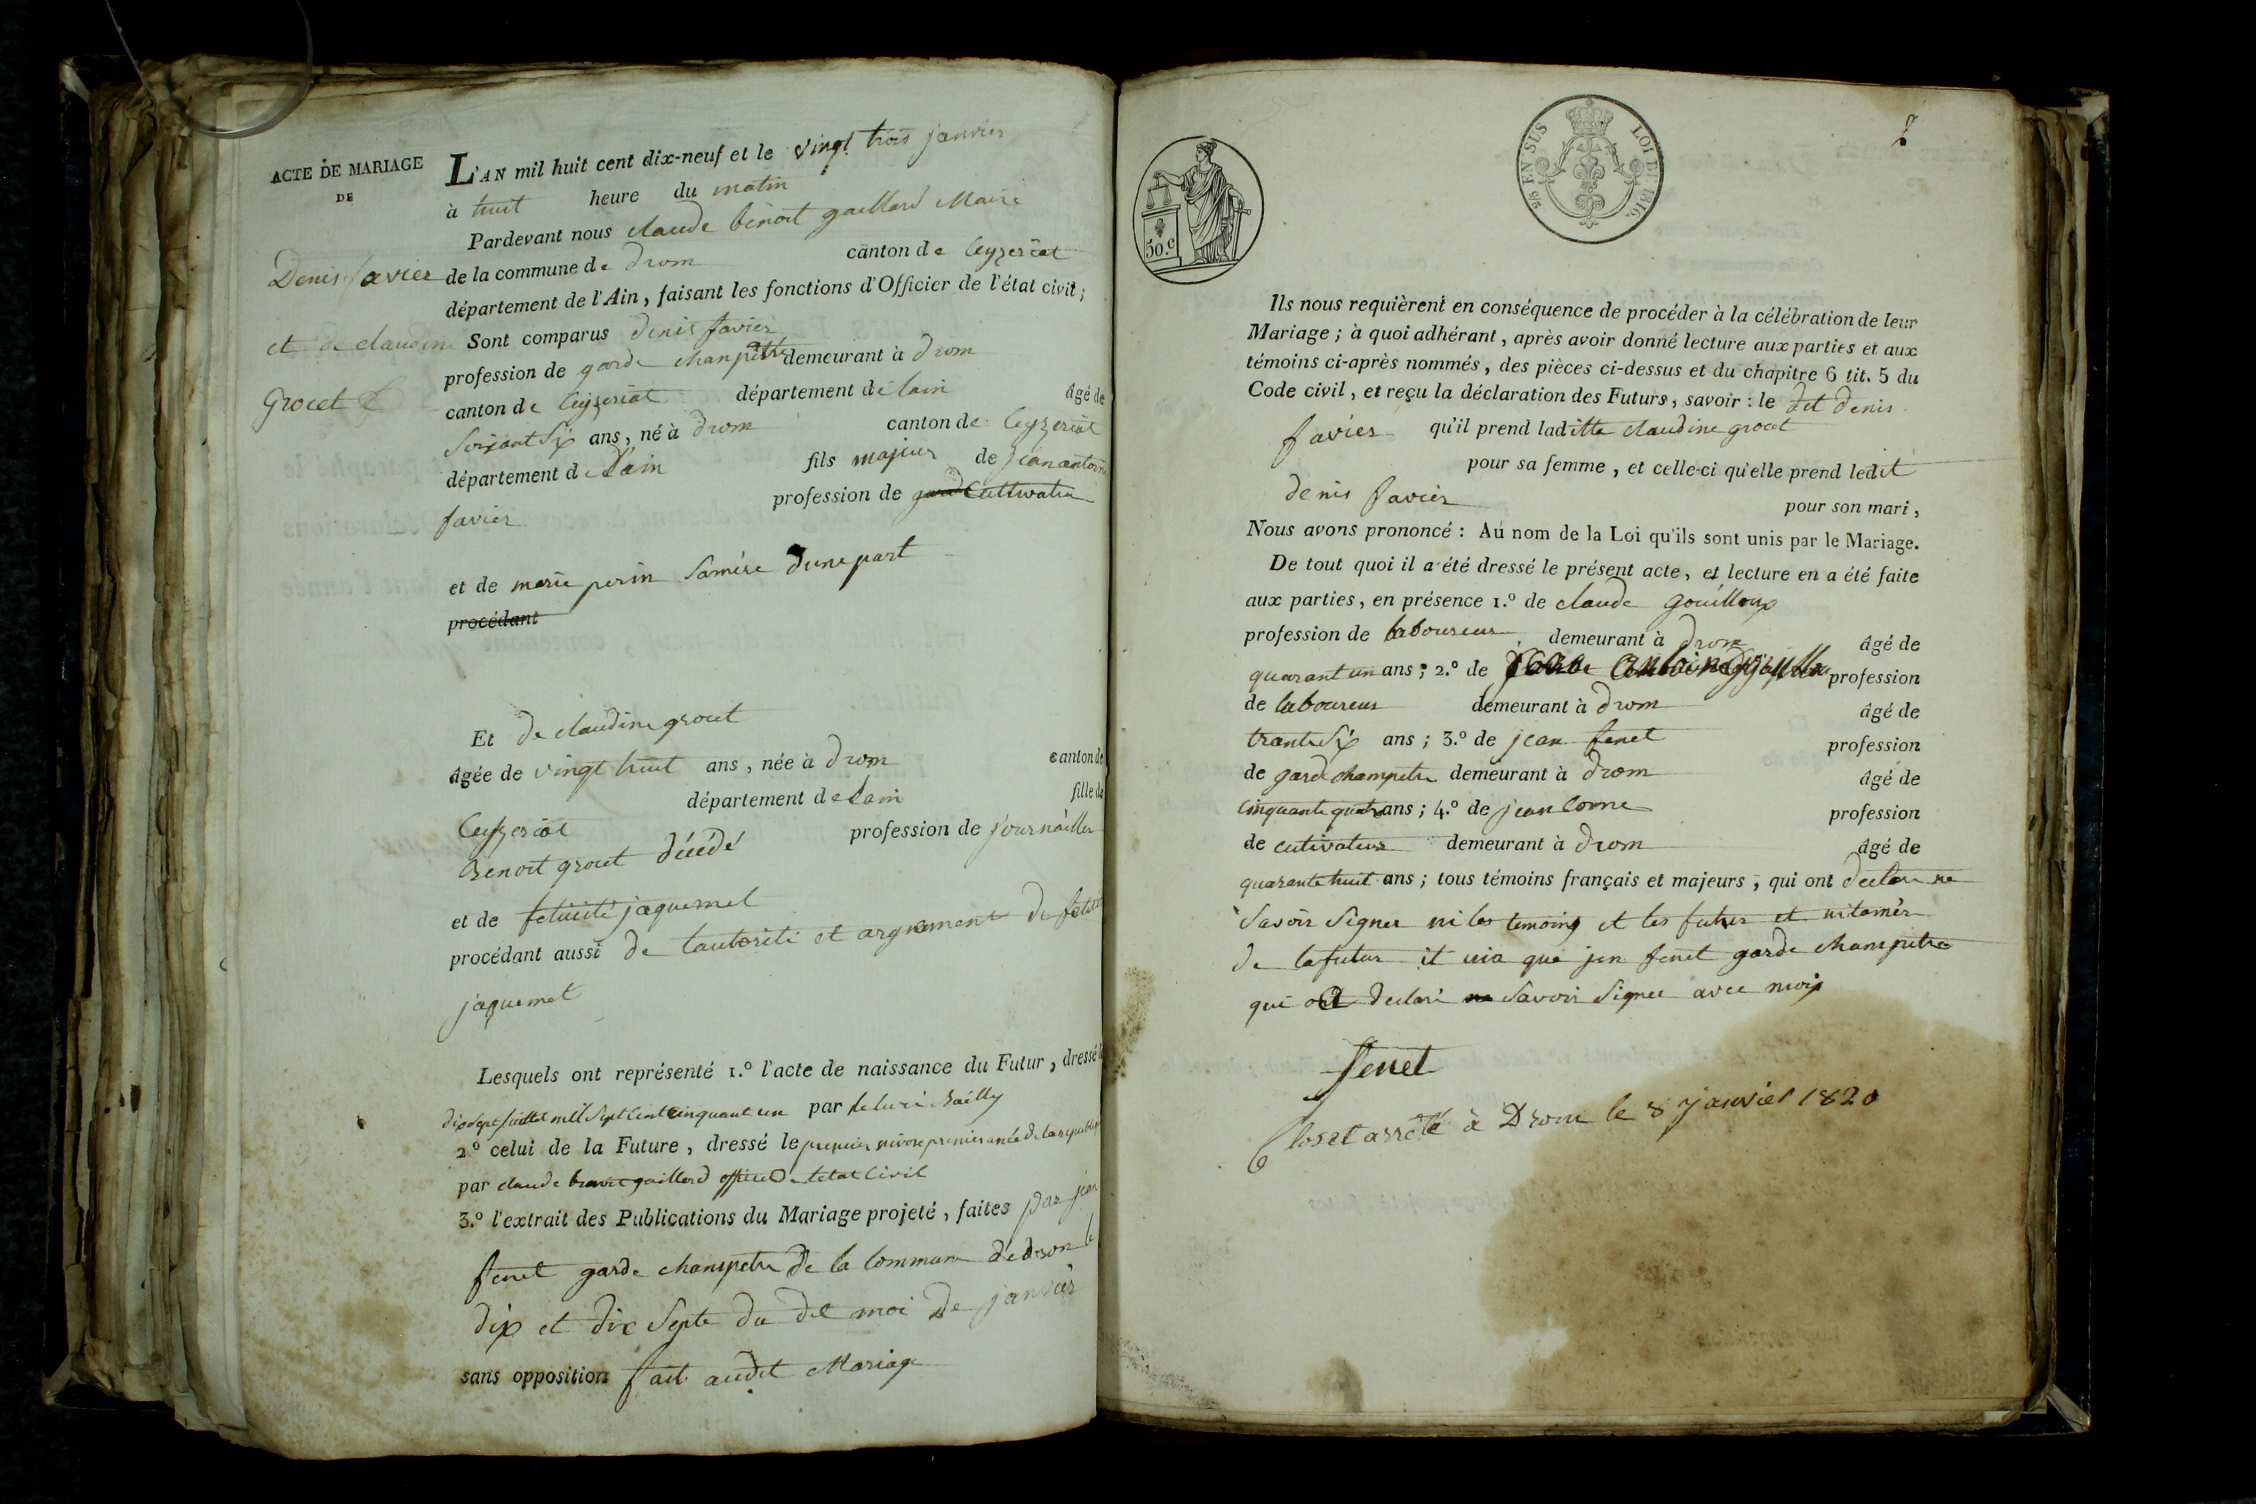 ACTE DE MARIAGE
DE
Denis favier
et de claudine
Grocet
L'AN mil huit cent dix-neuf et le vingt trois janvier
à huit heure du matin
Pardevant nous claude benoit gaillard Maire
de la commune de Drom canton de Ceyzeriat
département de l'Ain, faisant les fonctions d'Officier de l'état civil;
Sont comparus denis favier
profession de garde chanpettre demeurant à Drom
canton de Ceyzeriat département de lain âgé de
Soixant Six ans, né à Drom canton de Ceyzeriat
département de L'ain fils majeur de jean antoine
favier profession de Cultivateur
et de marie perin Samère Dune part
procédant
Et De claudine grocet
âgée de vingt huit ans, née à Drom canton de
Ceyzeriat département de Lain fille de
Benoit grocet décédé profession de journailler
et de felicité jaquemet
procédant aussi de lautorité et argrement De felicité
jaquemet
Lesquels ont représenté 1.º l'acte de naissance du Futur, dressé le
dixsept juillet mil Sept Cent cinquant un par
2.º celui de la Future, dressé le premier nivose premier anée de la republique
par claude benoit gaillard officié De letat Civil
3.º l'extrait des Publications du Mariage projeté, faites par jean
fenet garde champetre De la Commune de drom le
Dix et dix Septe du dit moi De janvier
sans opposition fait audit Mariage
2
50.C
2/5 EN SUS LOI DE 1816.
Ils nous requièrent en conséquence de procéder à la célébration de leur
Mariage; à quoi adhérant, après avoir donné lecture aux parties et aux
témoins ci-après nommés, des pièces ci-dessus et du chapitre 6 tit. 5 du
Code civil, et reçu la déclaration des Futurs, savoir : le dit Denis
favier qu'il prend laditte claudine grocet
pour sa femme, et celle-ci qu'elle prend ledit
denis favier pour son mari,
Nous avons prononcé : Au nom de la Loi qu'ils sont unis par le Mariage.
De tout quoi il a été dressé le présent acte, et lecture en a été faite
aux parties, en présence 1.º de claude gouilloux
profession de laboureur demeurant à Drom âgé de
quarant un ans; 2.º de antoine profession
de laboureur demeurant à Drom âgé de
trante Six ans; 3.º de jean fenet profession
de garde champetre demeurant à Drom âgé de
cinquante quatre ans; 4.º de jean Corne profession
de cutivateur demeurant à Drom âgé de
quarante huit ans; tous témoins français et majeurs, qui ont declare ne
Savoir Signer ni les temoins et les futur et ni lamèr
de la futur il nia que jen fenet garde champetre
qui ont Declaré Savoir Signer avec moix
fenet
Clos et arrêté à Drom le 8 janvier 1820